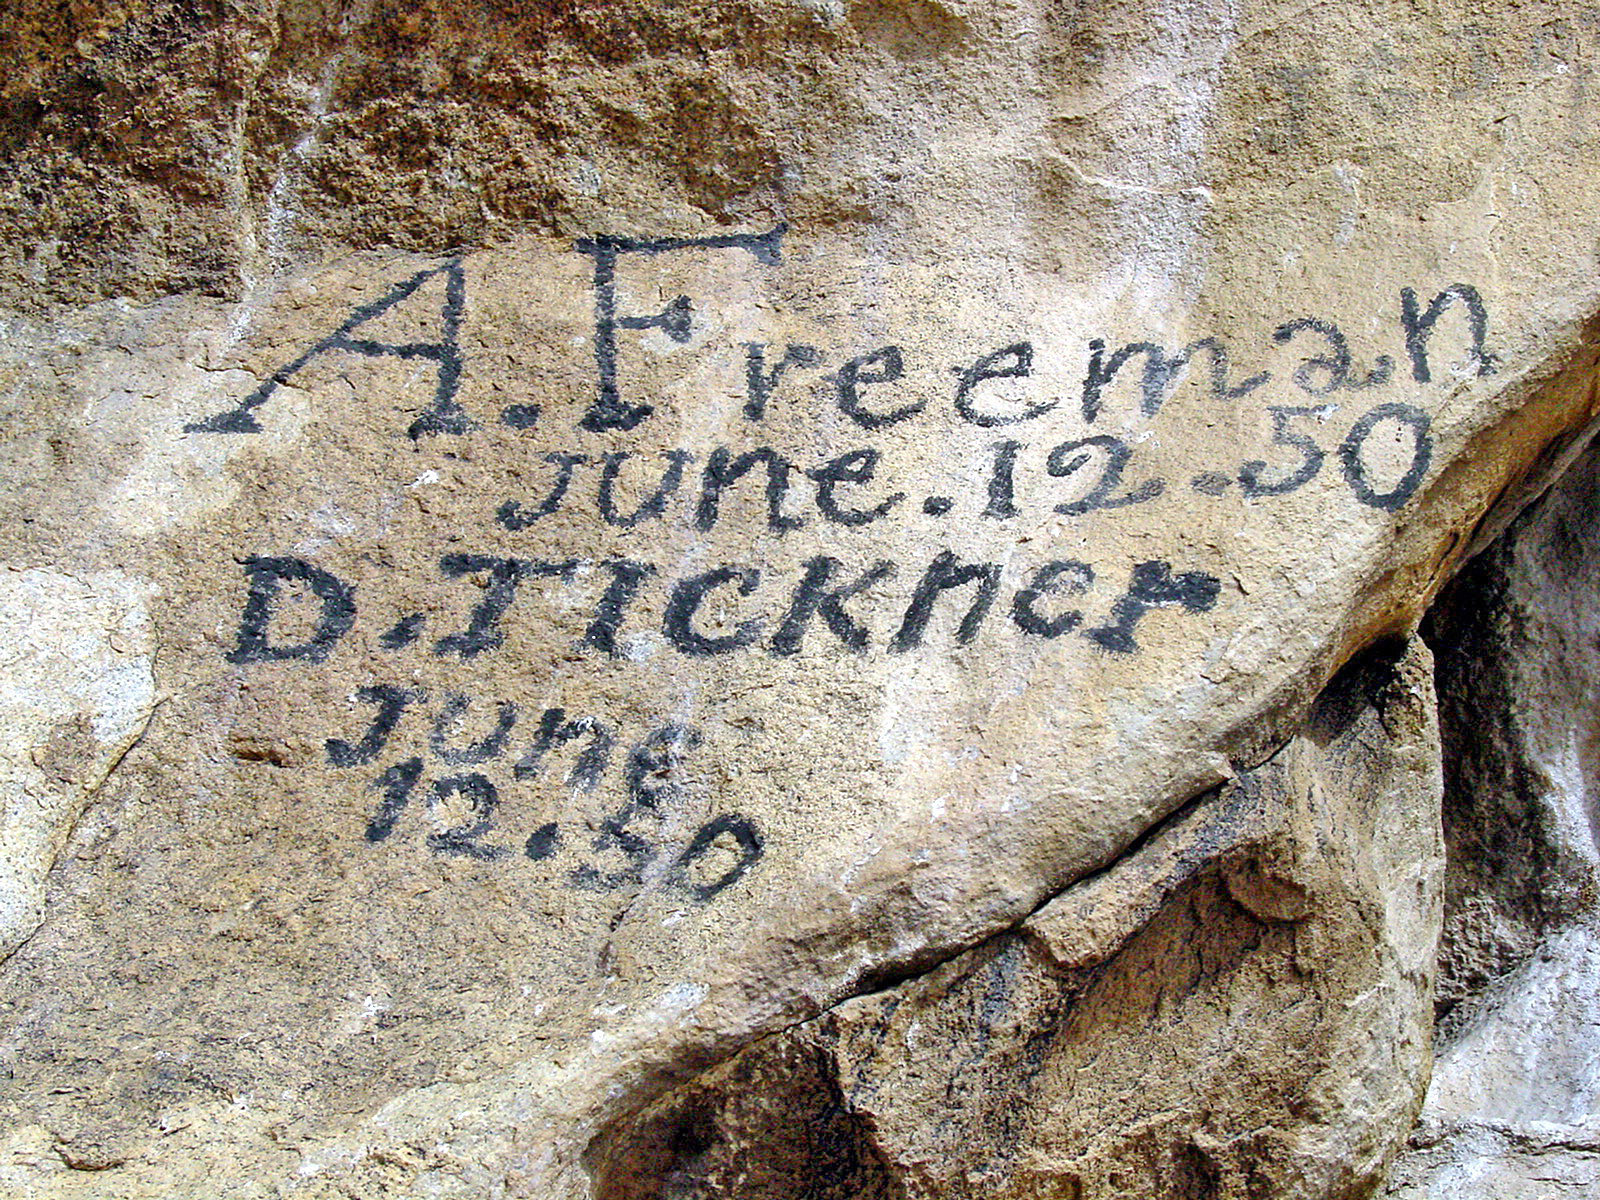 A. Freeman
June. 12. 50
D. Tickner
June
12. 50